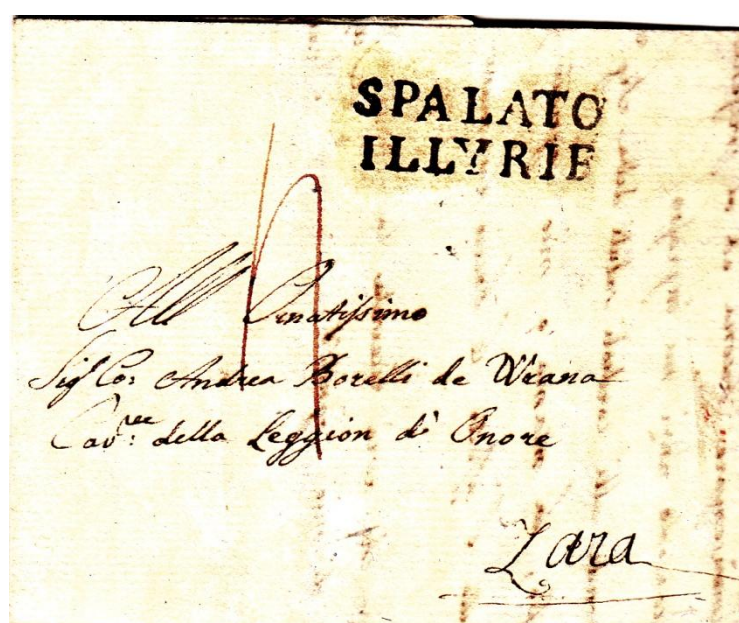 SPALATO
ILLYRIE
4
All Ornatissimo
Sig Co: Andrea Borelli de Wrana
Cav:ree della Leggion d' Onore
Zara